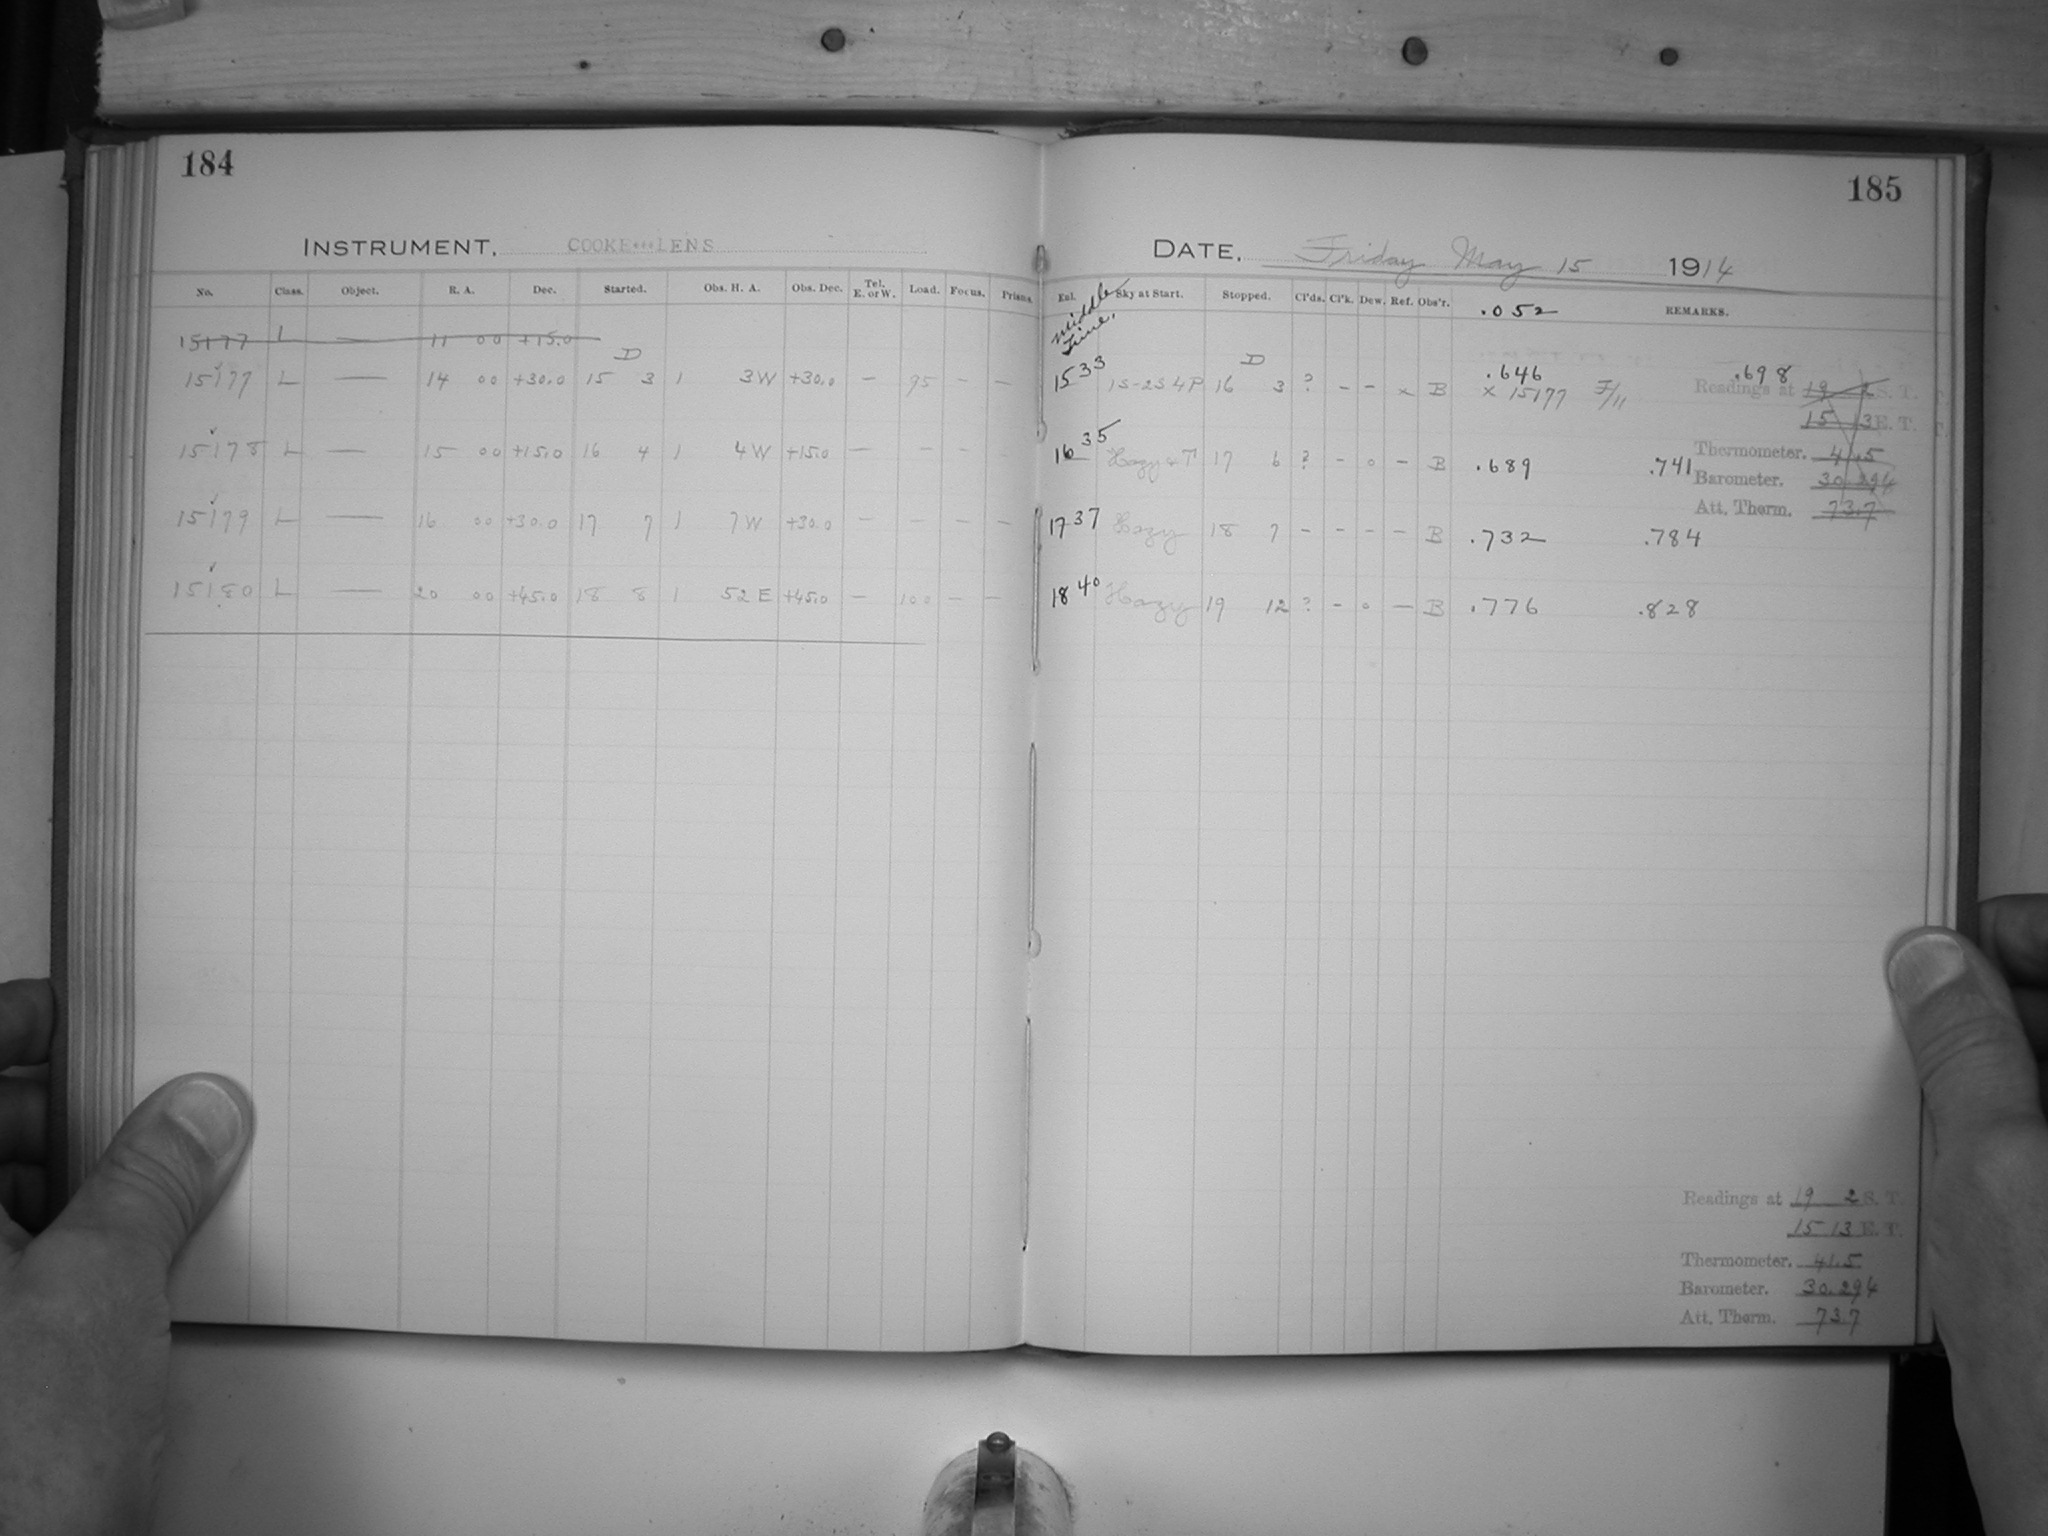 184
INSTRUMENT. COOKE LENS
No. Class. Object. R. A. Dec. Started. Obs. H. A. Obs. Dec. Tel. E. or W. Load. Focus. Prisms.
15177 L — 11 00 +15.0
D
15177 L — 14 00 +30.0 15 3 1 3 W +30.0 — 95 — —
15178 L — 15 00 +15.0 16 4 1 4 W +15.0 — — — —
15179 L — 16 00 +30.0 17 7 1 7 W +30.0 — — — —
15180 L — 20 00 +45.0 18 8 1 52 E +45.0 — 100 — —
185
DATE. Friday May 15 1914
Sky at Start. Stopped. Cl'ds. Cl'k. Dew. Ref. Obs'r. .052 REMARKS.
Middle Time.
D
15 33 1S-2S4P 16 3 ? – – x B .646 .698
x 15177 F/11
Readings at 19 2 S. T.
15 13 E. T.
16 35 Hazy & T 17 6 ? – o – B .689 .741
Thermometer. 41.5
Barometer. 30.294
Att. Therm. 73.7
17 37 Hazy 18 7 – – – – B .732 .784
18 40 Hazy 19 12 ? – o – B .776 .828
Readings at 19 2 S. T.
15 13 E. T.
Thermometer. 41.5
Barometer. 30.294
Att. Therm. 73.7